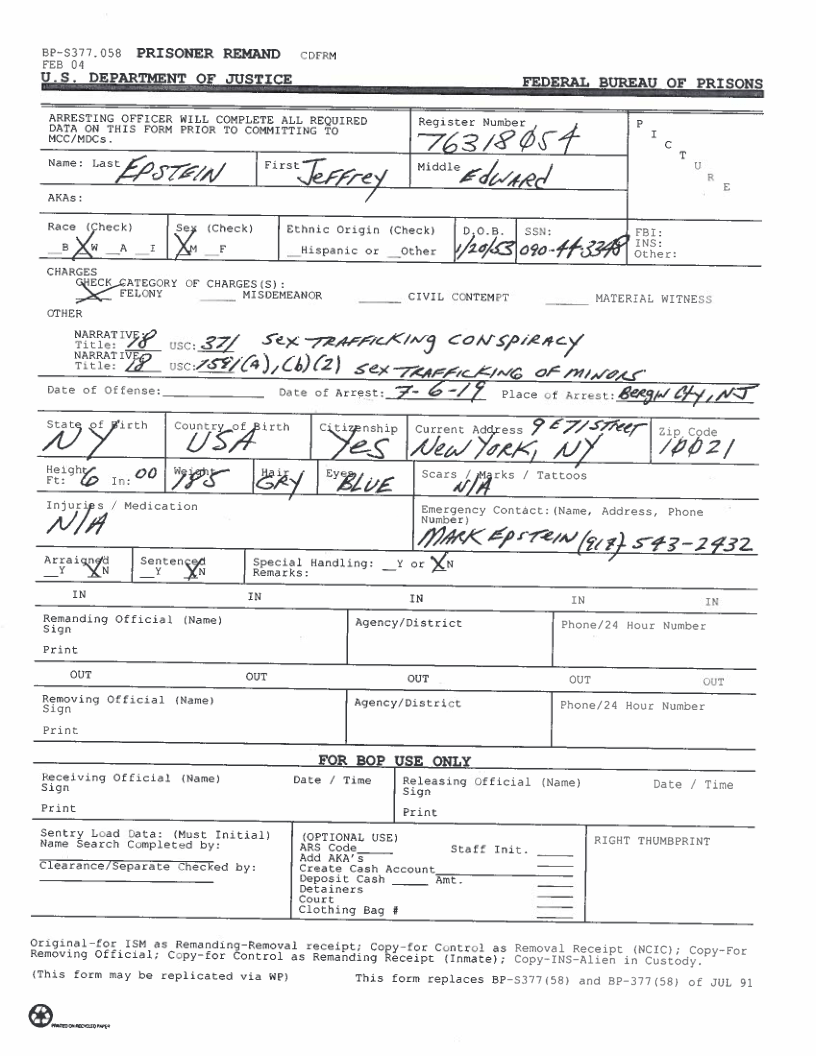 BP-S377.058 PRISONER REMAND CDFRM
FEB 04
U.S. DEPARTMENT OF JUSTICE FEDERAL BUREAU OF PRISONS
ARRESTING OFFICER WILL COMPLETE ALL REQUIRED
DATA ON THIS FORM PRIOR TO COMMITTING TO
MCC/MDCs.
Register Number
76318054
PICTURE
Name: Last EPSTEIN First Jeffrey Middle EdwARd
AKAs:
Race (Check) Sex (Check) Ethnic Origin (Check) D.O.B. SSN: FBI:
__B X W __A __I X M __F __Hispanic or __Other 1/20/53 090-44-3348 INS:
Other:
CHARGES
CHECK CATEGORY OF CHARGES(S):
X FELONY ____ MISDEMEANOR ____ CIVIL CONTEMPT ____ MATERIAL WITNESS
OTHER
NARRATIVE:
Title: 18 USC: 371 Sex TRAFFICKINg CONSPIRACY
NARRATIVE
Title: 18 USC: 1591(a),(b)(2) Sex TRAFFICKING OF MINORS
Date of Offense: Date of Arrest: 7-6-19 Place of Arrest: Bergin Cty, NJ
State of Birth Country of Birth Citizenship Current Address 9 E 71 Street Zip Code
NY USA Yes New York, NY 10021
Height Weight Hair Eyes Scars / Marks / Tattoos
Ft: 6 In: 00 185 GRY BLUE N/A
Injuries / Medication Emergency Contact: (Name, Address, Phone
Number)
N/A MARK EpsTEIN (917) 543-2432
Arraigned Sentenced Special Handling: __Y or X N
__Y X N __Y X N Remarks:
IN IN IN IN IN
Remanding Official (Name) Agency/District Phone/24 Hour Number
Sign
Print
OUT OUT OUT OUT OUT
Removing Official (Name) Agency/District Phone/24 Hour Number
Sign
Print
FOR BOP USE ONLY
Receiving Official (Name) Date / Time Releasing Official (Name) Date / Time
Sign Sign
Print Print
Sentry Load Data: (Must Initial)
Name Search Completed by:
Clearance/Separate Checked by:
(OPTIONAL USE)
ARS Code____ Staff Init. ____
Add AKA's
Create Cash Account
Deposit Cash ____ Amt.
Detainers
Court
Clothing Bag #
RIGHT THUMBPRINT
Original-for ISM as Remanding-Removal receipt; Copy-for Control as Removal Receipt (NCIC); Copy-For
Removing Official; Copy-for Control as Remanding Receipt (Inmate); Copy-INS-Alien in Custody.
(This form may be replicated via WP) This form replaces BP-S377(58) and BP-377(58) of JUL 91
PRINTED ON RECYCLED PAPER